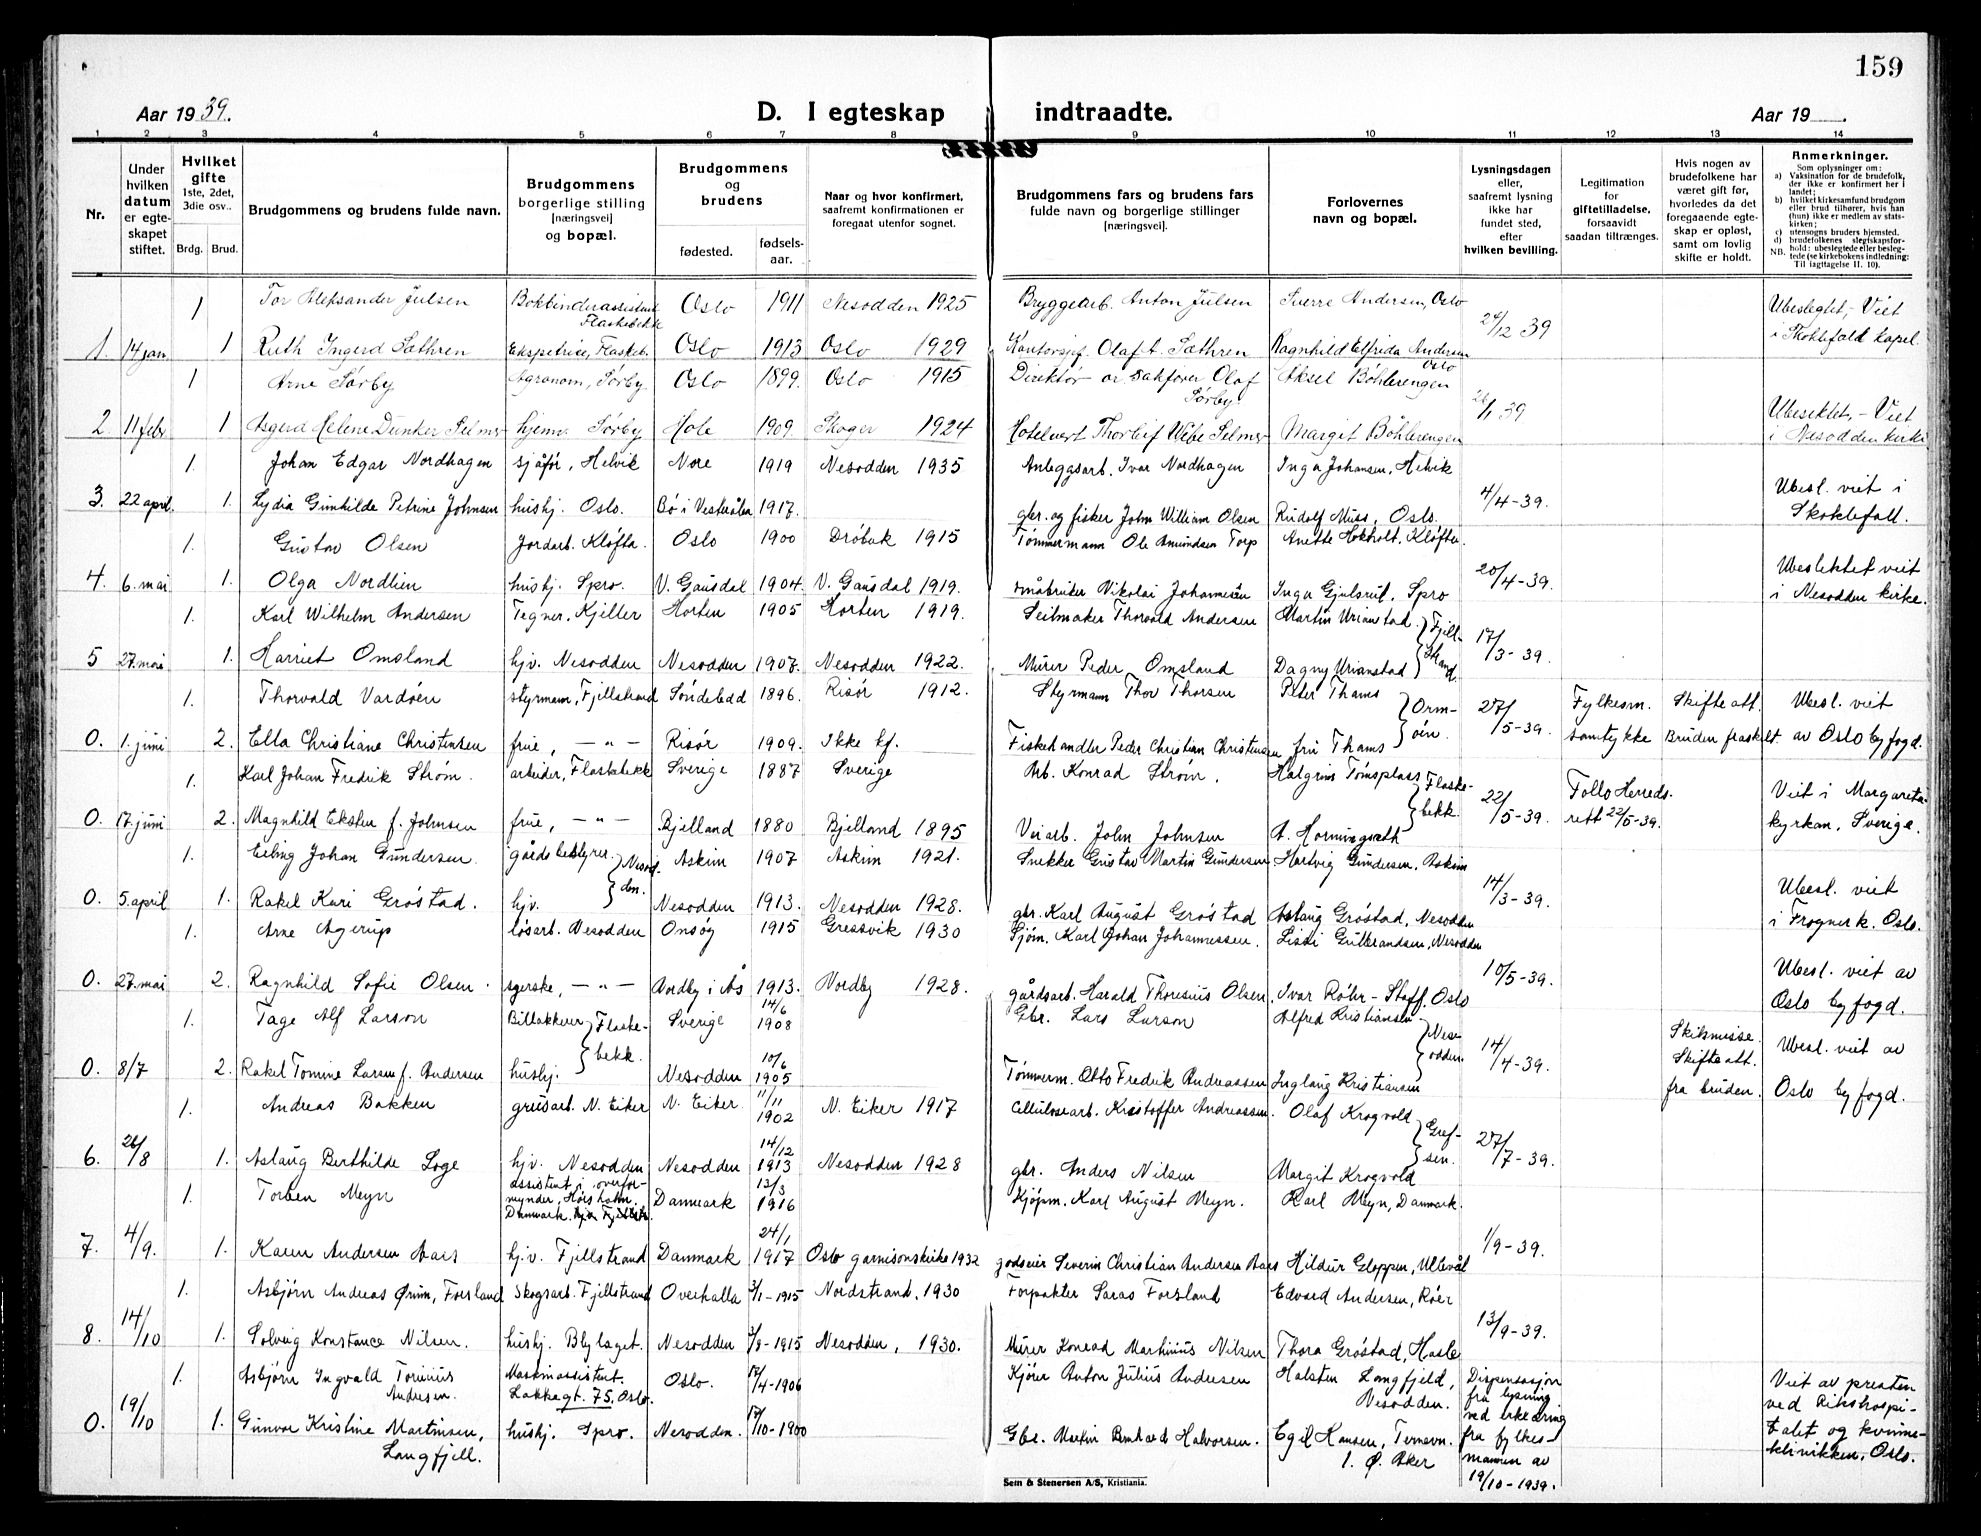 159
Aar 1939.
D. I egteskap indtraadte.
Aar 19
1 2 3 4 5 6 7 8 9 10 11 12 13 14
Nr.
Under hvilken datum er egteskapet stiftet.
Hvilket gifte 1ste, 2det, 3die osv..
Brdg. Brud.
Brudgommens og brudens fulde navn.
Brudgommens borgerlige stilling [næringsvei] og bopæl.
Brudgommens og brudens
fødested. fødselsaar.
Naar og hvor konfirmert, saafremt konfirmationen er foregaat utenfor sognet.
Brudgommens fars og brudens fars fulde navn og borgerlige stillinger [næringsvei].
Forlovernes navn og bopæl.
Lysningsdagen eller, saafremt lysning ikke har fundet sted, efter hvilken bevilling.
Legitimation for giftetilladelse, forsaavidt saadan tiltrænges.
Hvis nogen av brudefolkene har været gift før, hvorledes da det foregaaende egteskap er opløst, samt om lovlig skifte er holdt.
Anmerkninger.
Som oplysninger om:
a) Vaksination for de brudefolk, der ikke er konfirmert her i landet;
b) hvilket kirkesamfund brudgom eller brud tilhører, hvis han (hun) ikke er medlem av statskirken;
c) utensogns bruders hjemsted.
d) brudefolkenes slegtskapsforhold: ubeslegtede eller beslegtede (se kirkebokens indledning: NB. Til iagttagelse II. 10).
1 Tor Aleksander Julsen Bokbinderassistent Flaskebekk Oslo 1911 Nesodden 1925 Bryggearb. Anton Julsen Sverre Andersen, Oslo
29/12 39 Ubeslegtet,- Viet
1. 14 jan. 1 Ruth Ingerd Sæthren Ekspetrise, Flaskeb. Oslo 1913 Oslo 1929 Kontorsjef. Olaf A. Sæthren Ragnhild Elfrida Andersen Oslo i Skoklefald kapel.
1 Arne Sørby Agronom, Sørby Oslo 1899. Oslo 1915 Direktør or. sakfører Olaf Sørby. Aksel Böhlerengen
26/1 39 Ubeslektet,- Viet
2. 11 febr 1 Asgerd Helene Dunker Selmer hjemv. Sørby Hole 1909. Skoger 1924 Hotelvert Thorleif Wibe Selmer Margit Böhlerengen i Nesodden kirke
1. Johan Edgar Nordhagen sjåfør, Helvik Nore 1919 Nesodden 1935 Anleggsarb. Ivar Nordhagen Inga Johansen, Helvik
4/4-39. Ubesl. viet i
3. 22 april. 1. Lydia Gunhilde Petrine Johnsen hushj. Oslo. Bø i Vesterålen 1917. gbr. og fisker John William Olsen Rudolf Muss, Oslo. Skoklefall.
1. Gustav Olsen Jordarb. Kløfta. Oslo 1900 Drøbak 1915 Tømmermann Ole Amundsen Torp Anette Hokholt, Kløfta.
20/4-39. Ubeslektet viet
4. 6. mai 1. Olga Nordlien hushj. Spro. V. Gausdal 1904. V. Gausdal 1919. småbruker Nikolai Johannesen Inga Gjulsrud, Spro i Nesodden kirke.
1. Karl Wilhelm Andersen Tegner. Kjeller Horten 1905 Horten 1919. Seilmaker Thorvald Andersen Martin Urianstad. } Fjellstrand
17/3-39.
5 27. mai 1. Harriet Omsland hjv. Nesodden Nesodden 1907. Nesodden 1922. Murer Peder Omsland Dagny Urianstad
1. Thorvald Vardøen styrmann, Fjellstrand Søndeled 1896. Risør 1912. Styrmann Thor Thorsen Peter Thams } Ormøen.
27/5-39. Fylkesm. samtykke Skifteatt. Bruden fraskelt. Ubesl. viet
0. 1. juni 2. Ella Christiane Christensen frue, -"- Risør 1909. Ikke kf. Fiskehandler Peder Christian Christensen fru Thams av Oslo byfogd.
1. Karl Johan Fredrik Strøm. arbeider, Flaskebekk Sverige 1887 Sverige Arb. Konrad Strøm. Halgrim Tömsplass } Flaskebekk.
22/5-39. Follo Herredsrett 22/5-39. Viet i Margareta-
0. 17. juni 2. Magnhild Eksten f. Johnsen frue, -"- Bjelland 1880 Bjelland 1895 Veiarb. John Johnsen A. Horningvath kyrkan, Sverige.
1. Erling Johan Gundersen. gårdsbestyrer. } Nesodden. Askim 1907 Askim 1921. Snekker Gustav Martin Gundersen Hartvig Gundersen, Askim
14/3-39. Ubesl. viet
0. 5. april 1. Rakel Kari Grøstad. hjv. Nesodden 1913. Nesodden 1928. gbr. Karl August Grøstad Aslaug Grøstad, Nesodden i Frogner k. Oslo.
1. Arne Agerup løsarb. Nesodden Onsøy 1915 Gressvik 1930 Sjøm. Karl Johan Johannessen. Lissi Gulbrandsen, Nesodden
10/5-39. Ubesl. viet av
0. 27. mai 2. Ragnhild Sofie Olsen. syerske, -"- Nordby i Ås 1913. Nordby 1928. gårdsarb. Harald Thoresius Olsen. Ivar Röhr-Staff. Oslo Oslo byfogd.
1. Tage Alf Larson Billakkerer } Flaskebekk. Sverige 14/6 1908 Gbr. Lars Larson Alfred Kristiansen } Nesodden
14/4-39. Skilsmisse. Skifteatt. fra bruden. Ubesl. viet av
0. 8/7 2. Rakel Tomine Larsen f. Andersen hushj. Nesodden 10/6 1905 Tømmerm. Otto Fredrik Andreassen Inglaug Kristiansen Oslo byfogd.
1. Andreas Bakken grusarb. N. Eiker N. Eiker. 11/11 1902 N. Eiker 1917 Cellulosearb. Kristoffer Andreassen. Olaf Krogvold } Grefsen.
27/7-39.
6. 26/8 1. Aslaug Berthilde Soge hjv. Nesodden Nesodden 14/12 1913 Nesodden 1928 gbr. Anders Nilsen Margit Krogvold
1. Torben Meyn assistent i overformynder, Hørsholm. Danmark. Danmark 13/3 1916 Kjøpm. Karl August Meyn. Karl Meyn, Danmark.
1/9-39.
7. 4/9. 1. Karen Andersen Aars hj.v. Fjellstrand Danmark 24/1 1917 Oslo garnisonskirke 1932 godseier Severin Christian Andersen Aars Hildur Gloppen, Ullevål
1. Asbjørn Andreas Ørum, Forsland Skogsarb. Fjellstrand Overhalla 3/1-1915 Nordstrand. 1930 Forpakter Saras Forsland Edvard Andersen, Röer
13/9-39.
8. 14/10 1. Solveig Konstance Nilsen. hushj. Blylaget. Nesodden 3/8-1915 Nesodden, 1930. Murer Konrad Marthinius Nilsen Thora Grøstad, Hasle
1. Asbjørn Ingvald Torinius Andersen. Maskinassistent. Lakkegt. 75, Oslo. Oslo. 17/4-1906 Kjører Anton Julius Andersen Halsten Langfjeld, Nesodden. Dispensasjon fra lysning ved erklæring fra fylkesmannen av 19/10-1939. Viet av presten ved Rikshospitalet og kvinneklinikken, Oslo.
0. 19/10 1. Gunvor Kristine Martinsen, Langfjell. hushj. Spro. Nesodden. 17/10-1900 Gbr. Martin Bernhard Halvorsen. Egil Hansen, Ternevn. 1. Ø. Aker
Sem & Stenersen A/S, Kristiania.